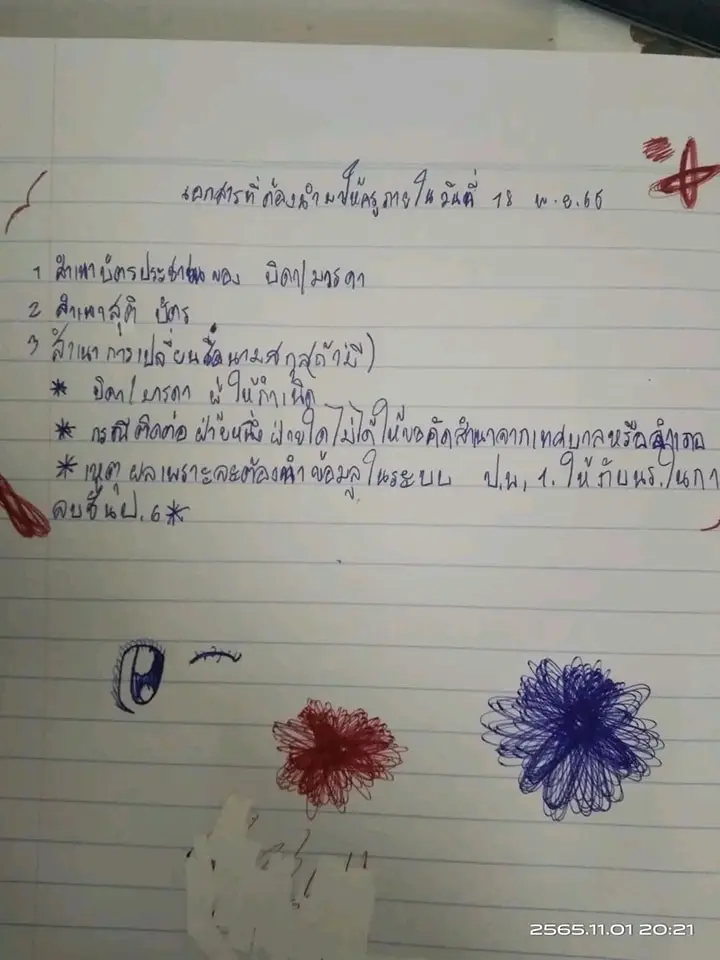 เอกสารที่ต้องนำมาให้ครูภายในวันที่ 18 พ.ย.65
1 สำเนาบัตรประชาชนของ บิดา/มารดา
2 สำเนาสูติ บัตร
3 สำเนา การเปลี่ยนชื่อนามสกุล(ถ้ามี)
* บิดา/มารดา ผู้ให้กำเนิด
* กรณีติดต่อ ฝ่ายหนึ่ง ฝ่ายใด ไม่ได้ให้ขอคัดสำเนาจากเทศบาลหรืออำเภอ
* เหตุ ผลเพราะจะต้องนำ ข้อมูลในระบบ ป.พ, 1. ให้ กับนร. ในกา
จบชั้นป. 6 *
2565.11.01 20:21